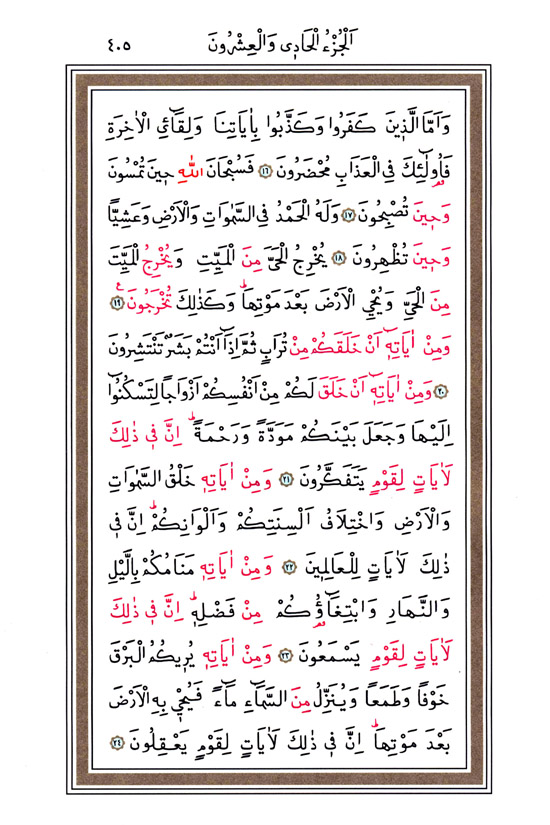 اَلْجُزْءُ الْحَادِى وَالْعِشْرُونَ ٤٠٥
وَاَمَّا الَّذِينَ كَفَرُوا وَكَذَّبُوا بِاٰيَاتِنَا وَلِقَٓائِ الْاٰخِرَةِ
فَاُو۬لٰٓئِكَ فِى الْعَذَابِ مُحْضَرُونَ ﴿١٦﴾ فَسُبْحَانَ اللّٰهِ حِينَ تُمْسُونَ
وَحِينَ تُصْبِحُونَ ﴿١٧﴾ وَلَهُ الْحَمْدُ فِى السَّمٰوَاتِ وَالْاَرْضِ وَعَشِيًّا
وَحِينَ تُظْهِرُونَ ﴿١٨﴾ يُخْرِجُ الْحَىَّ مِنَ الْمَيِّتِ وَيُخْرِجُ الْمَيِّتَ
مِنَ الْحَىِّ وَيُحْيِى الْاَرْضَ بَعْدَ مَوْتِهَاۜ وَكَذٰلِكَ تُخْرَجُونَ۟ ﴿١٩﴾
وَمِنْ اٰيَاتِه۪ٓ اَنْ خَلَقَكُمْ مِنْ تُرَابٍ ثُمَّ اِذَٓا اَنْتُمْ بَشَرٌ تَنْتَشِرُونَ
﴿٢٠﴾ وَمِنْ اٰيَاتِه۪ٓ اَنْ خَلَقَ لَكُمْ مِنْ اَنْفُسِكُمْ اَزْوَاجًا لِتَسْكُنُٓوا
اِلَيْهَا وَجَعَلَ بَيْنَكُمْ مَوَدَّةً وَرَحْمَةًۜ اِنَّ فِى ذٰلِكَ
لَاٰيَاتٍ لِقَوْمٍ يَتَفَكَّرُونَ ﴿٢١﴾ وَمِنْ اٰيَاتِه۪ خَلْقُ السَّمٰوَاتِ
وَالْاَرْضِ وَاخْتِلَافُ اَلْسِنَتِكُمْ وَاَلْوَانِكُمْۜ اِنَّ فِى
ذٰلِكَ لَاٰيَاتٍ لِلْعَالِمِينَ ﴿٢٢﴾ وَمِنْ اٰيَاتِه۪ مَنَامُكُمْ بِالَّيْلِ
وَالنَّهَارِ وَابْتِغَٓاؤُ۬كُمْ مِنْ فَضْلِه۪ۜ اِنَّ فِى ذٰلِكَ
لَاٰيَاتٍ لِقَوْمٍ يَسْمَعُونَ ﴿٢٣﴾ وَمِنْ اٰيَاتِه۪ يُرِيكُمُ الْبَرْقَ
خَوْفًا وَطَمَعًا وَيُنَزِّلُ مِنَ السَّمَٓاءِ مَٓاءً فَيُحْيِى بِهِ الْاَرْضَ
بَعْدَ مَوْتِهَاۜ اِنَّ فِى ذٰلِكَ لَاٰيَاتٍ لِقَوْمٍ يَعْقِلُونَ ﴿٢٤﴾